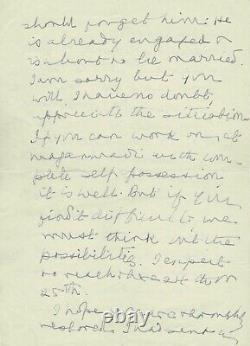 should forget him. He
is already engaged or
is about to be married.
I am sorry but you
will, I have no doubt,
appreciate the situation.
If you can work on, at
Maganwadi with com-
plete self possession
it is well. But if you
find it difficult we
must think out the
possibilities. I expect
to reach there at on
25th.
I hope
restored. I had send